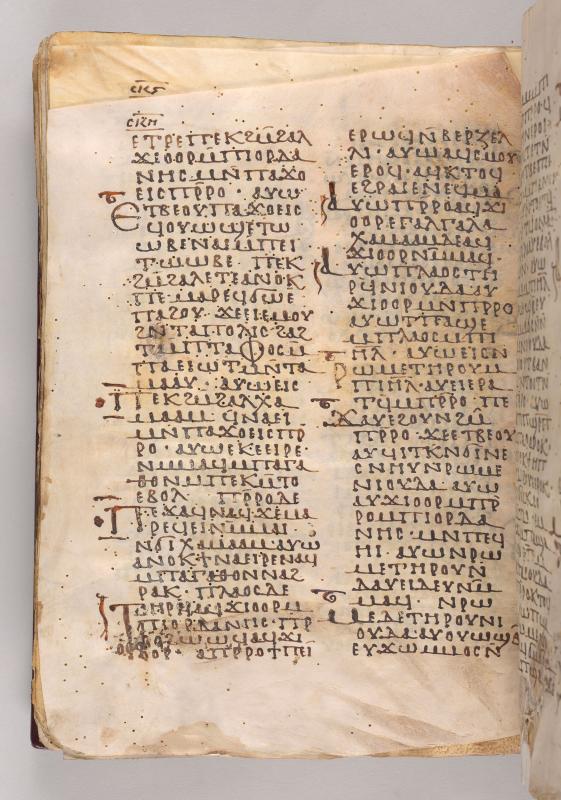 ⲉⲧⲣⲉⲡⲉⲕϩⲙ̄ϩⲁⲗ
ϫⲓⲟⲟⲣ ⲙⲡⲓⲟⲣⲇⲁ
ⲛⲏⲥ · ⲙⲛⲡⲁϫⲟ
ⲉⲓⲥ ⲡⲣⲣⲟ · ⲁⲩⲱ
ⲉⲧⲃⲉⲟⲩ ⲡⲁϫⲟⲉⲓⲥ
ϥⲟⲩⲱϣ ⲉⲧⲱ
ⲱⲃⲉ ⲛⲁⲓ ⲙⲡⲉⲓ
ⲧⲱⲱⲃⲉ · ⲡⲉⲕ
ϩⲙ̄ϩⲁⲗ ⲉⲧⲉⲁⲛⲟⲕ
ⲡⲉ ⲙⲁⲣⲉϥϭⲱϭⲉ
ⲡⲁϩⲟⲩ · ϫⲉⲉⲓⲉⲙⲟⲩ
ϩⲛⲧⲁⲡⲟⲗⲓⲥ ϩⲁϩ
ⲧⲙⲡⲧⲁⲫⲟⲥ ⲙ
ⲡⲁⲉⲓⲱⲧ ⲙⲛⲧⲁ
ⲙⲁⲁⲩ · ⲁⲩⲱ ⲉⲓⲥ
ⲡⲉⲕϩⲙϩⲁⲗ ⲭⲁ
ⲙⲁⲁⲙ · ϥⲛⲁⲉⲓ
ⲙⲛⲡⲁϫⲟⲉⲓⲥ ⲡⲣ
ⲣⲟ · ⲁⲩⲱ ⲉⲕⲉⲉⲓⲣⲉ
ⲛⲙⲙⲁϥ ⲙⲡⲁⲅⲁ
ⲑⲟⲛ ⲙⲡⲉⲕⲙⲧⲟ
ⲉⲃⲟⲗ · ⲡⲣⲣⲟ ⲇⲉ
ⲡⲉϫⲁϥ ⲛⲁϥ ϫⲉⲙⲁ
ⲣⲉϥⲉⲓ ⲛⲙⲙⲁⲓ ·
ⲛϭⲓⲭⲁⲙⲁⲁⲙ · ⲁⲩⲱ
ⲁⲛⲟⲕ ϯⲛⲁⲉⲓⲣⲉ ⲛⲁϥ
ⲙⲡⲁⲅⲁⲑⲟⲛ ⲛⲛⲁϩ
ⲣⲁⲕ · ⲡⲗⲁⲟⲥ ⲇⲉ
ⲧⲏⲣϥ ⲁϥϫⲓⲟⲟⲣ ⲙ
ⲡⲓⲟⲣⲇⲁⲛⲏⲥ · ⲡⲣ
ⲣⲟ ϩⲱⲱϥ ⲁϥϫⲓ
ⲟⲟⲣ · ⲁⲡⲣⲣⲟ ϯⲡⲉⲓ
ⲉⲣⲱϥ ⲛⲃⲉⲣⲍⲉⲗ
ⲗⲓ · ⲁⲩⲱ ⲁϥⲥⲙⲟⲩ
ⲉⲣⲟϥ · ⲁϥⲕⲧⲟϥ
ⲉϩⲣⲁⲓ ⲉⲡⲉϥⲙⲁ
ⲁⲩⲱ ⲡⲣⲣⲟ ⲁϥϫⲓ
ⲟⲟⲣ ⲉⲅⲁⲗⲅⲁⲗⲁ
ⲭⲁⲙⲁⲁⲙ ⲇⲉ ⲁϥ
ϫⲓⲟⲟⲣ ⲛⲙⲙⲁϥ ·
ⲁⲩⲱ ⲡⲗⲁⲟⲥ ⲧⲏ
ⲣϥ ⲛⲓⲟⲩⲇⲁ ⲁⲩ
ϫⲓⲟⲟⲣ ⲙⲛⲡⲣⲣⲟ
ⲁⲩⲱ ⲧⲡⲁϣⲉ
ⲙⲡⲗⲁⲟⲥ ⲙⲡⲓ
ⲏⲗ · ⲁⲩⲱ ⲉⲓⲥ ⲛ
ⲣⲱⲙⲉ ⲧⲏⲣⲟⲩ ⲙ
ⲡⲓⲏⲗ · ⲁⲩⲉⲓ ⲉⲣⲁ
ⲧϥ ⲙⲡⲣⲣⲟ · ⲡⲉ
ϫⲁⲩ ⲉϩⲟⲩⲛ ϩⲙ
ⲡⲣⲣⲟ · ϫⲉⲉⲧⲃⲉⲟⲩ
ⲁⲩϥⲓⲧⲕ ⲛϭⲓⲛⲉ
ⲥⲛⲏⲩ ⲛⲣⲱⲙⲉ
ⲛⲓⲟⲩⲇⲁ · ⲁⲩⲱ
ⲁⲩϫⲓⲟⲟⲣ ⲙⲡⲣ
ⲣⲟ ⲙⲡⲓⲟⲣⲇⲁ
ⲛⲏⲥ · ⲙⲛⲡⲉϥ
ⲏⲓ · ⲁⲩⲱ ⲛⲣⲱ
ⲙⲉ ⲧⲏⲣⲟⲩ ⲛ
ⲇⲁⲩⲉⲓⲇ ⲉⲩⲛⲙ
ⲙⲁϥ · ⲛⲣⲱ
ⲙⲉ ⲇⲉ ⲧⲏⲣⲟⲩ ⲛⲓ
ⲟⲩⲇⲁ · ⲁⲩⲟⲩⲱϣⲃ
ⲉⲩϫⲱ ⲙⲙⲟⲥ ⲛ